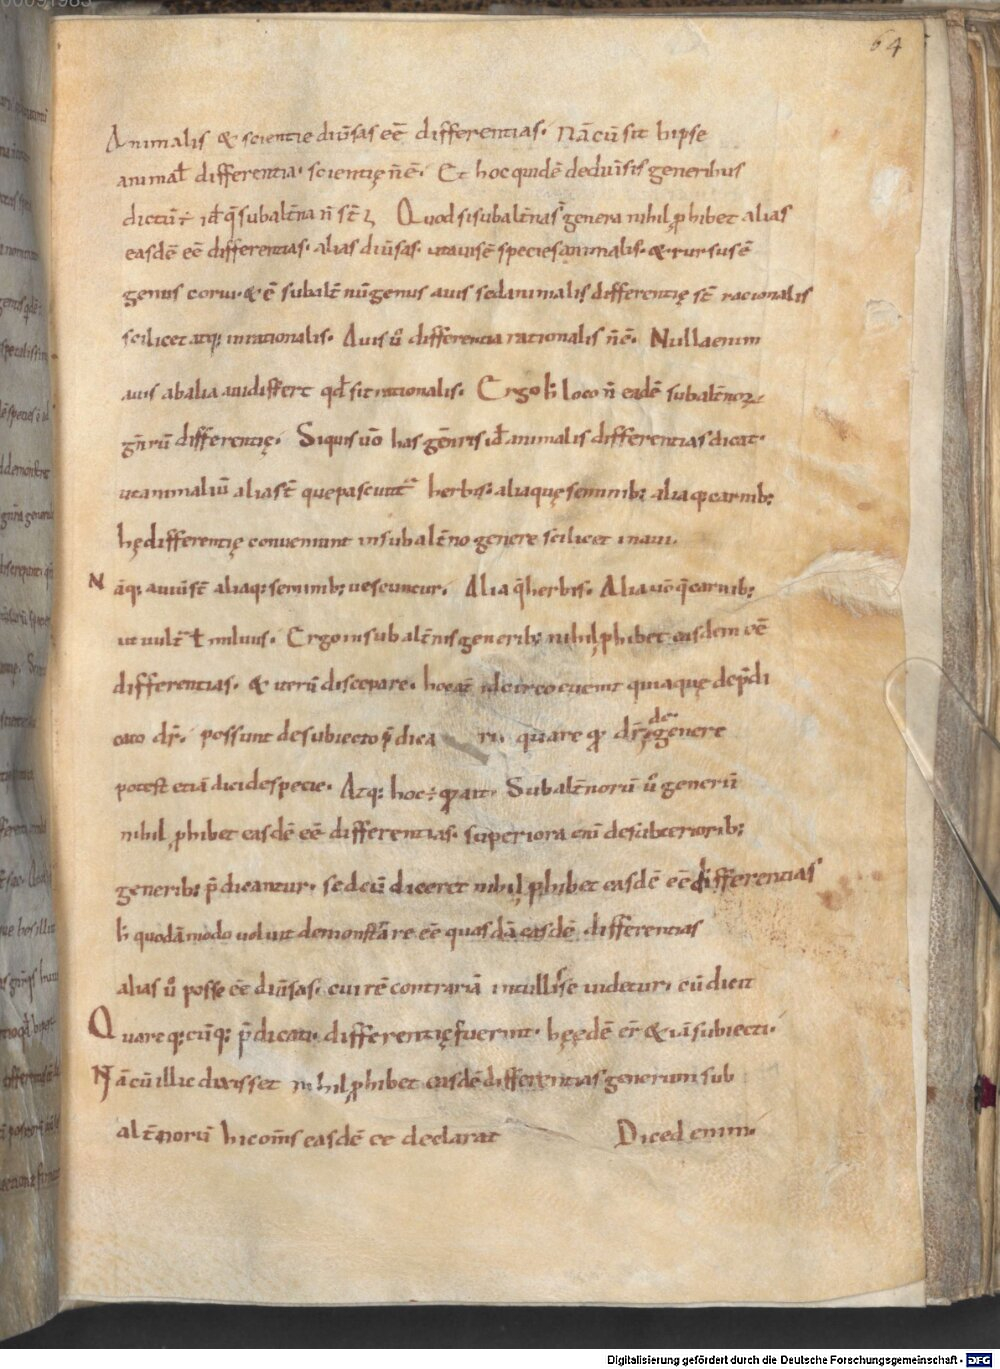 64
Animalis & scientie diūsas eē differentias. Nā cū sit bipes
animaƚ differentia. scientię n̄ ē. Et hoc quidē de diūsis generibus
dictū ÷ id q̄ subalt̄na n̄ st̄. Quod si subalt̄nas genera nihil ꝓhibet alias
easdē eē differentias. alias diūsas. ut auis ē species animalis. & rursus ē
genus corui. & ē subalt̄nū genus auis sed animalis differentię st̄ racionalis
scilicet atq; inrationalis. Auis ū differentia rationalis n̄ ē. Nulla enim
auis ab alia aui differt qđ sit rationalis. Ergo h̄ loco n̄ eadē subalt̄noꝝ
gn̄rū differentię. Si quis ūo has gēnris iđ animalis differentias dicat.
ut animaliū alia st̄ que pascunt̄ herbis. aliaquę seminib; alia q̨ carnib;
hę differentię conueniunt in subalt̄no genere scilicet in aui.
Nāq; auiū st̄ aliaq; seminib; uescuntur. Alia q̄ herbis. Alia uō q̄ carnib;
ut uult̄ ƚ miluus. Ergo in subalt̄nis generib; nihil ꝓhibet easdem eē
differentias. & iterū discrepare. hoc at̄ idcirco euenit quia quę de p̄di
cato dr̄. possunt de subiecto p̄dica ri. quare q̨ dr̄ de genere
potest etiā dici de specie. Atq; hoc ÷ q̨ ait. Subalt̄norū ū generū
nihil ꝓhibet easdē eē differentias. superiora eni de subteriorib;
generib; p̄dicantur. sed cū diceret nihil ꝓhibet easdē eē differentias
h̄ quodā modo uoluit demonst̄are eē quasdā easdē differentias
alias ū posse eē diūsas. cui rē contrariā intullisse uidetur. cū dicit
Quare q;cūq; p̄dicati. differentię fuerint. hę edē er̄ & iā subiecti.
Nā cū illic dixisset nihil ꝓhibet easdē differentias generum sub
alt̄norū hic om̄s easdē ee declarat Diced enim.
Digitalisierung gefördert durch die Deutsche Forschungsgemeinschaft - DFG